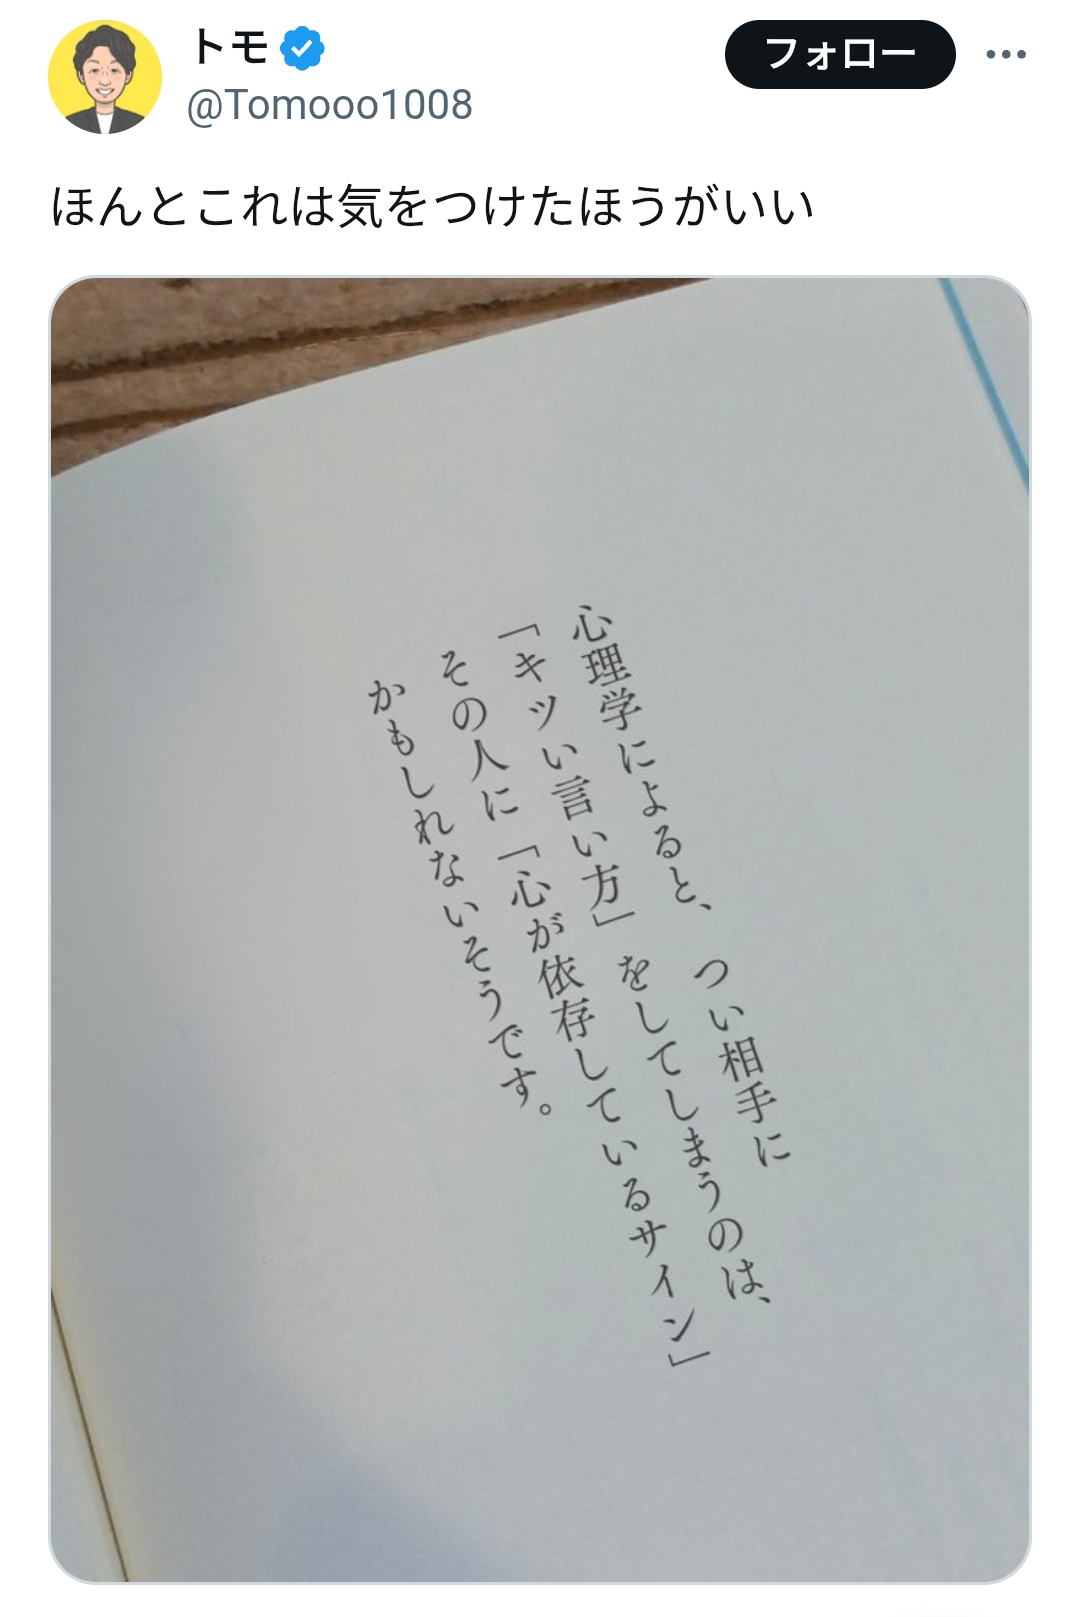 トモ
@Tomooo1008
フォロー
ほんとこれは気をつけたほうがいい
心理学によると、つい相手に
「キツい言い方」をしてしまうのは、
その人に「心が依存しているサイン」
かもしれないそうです。